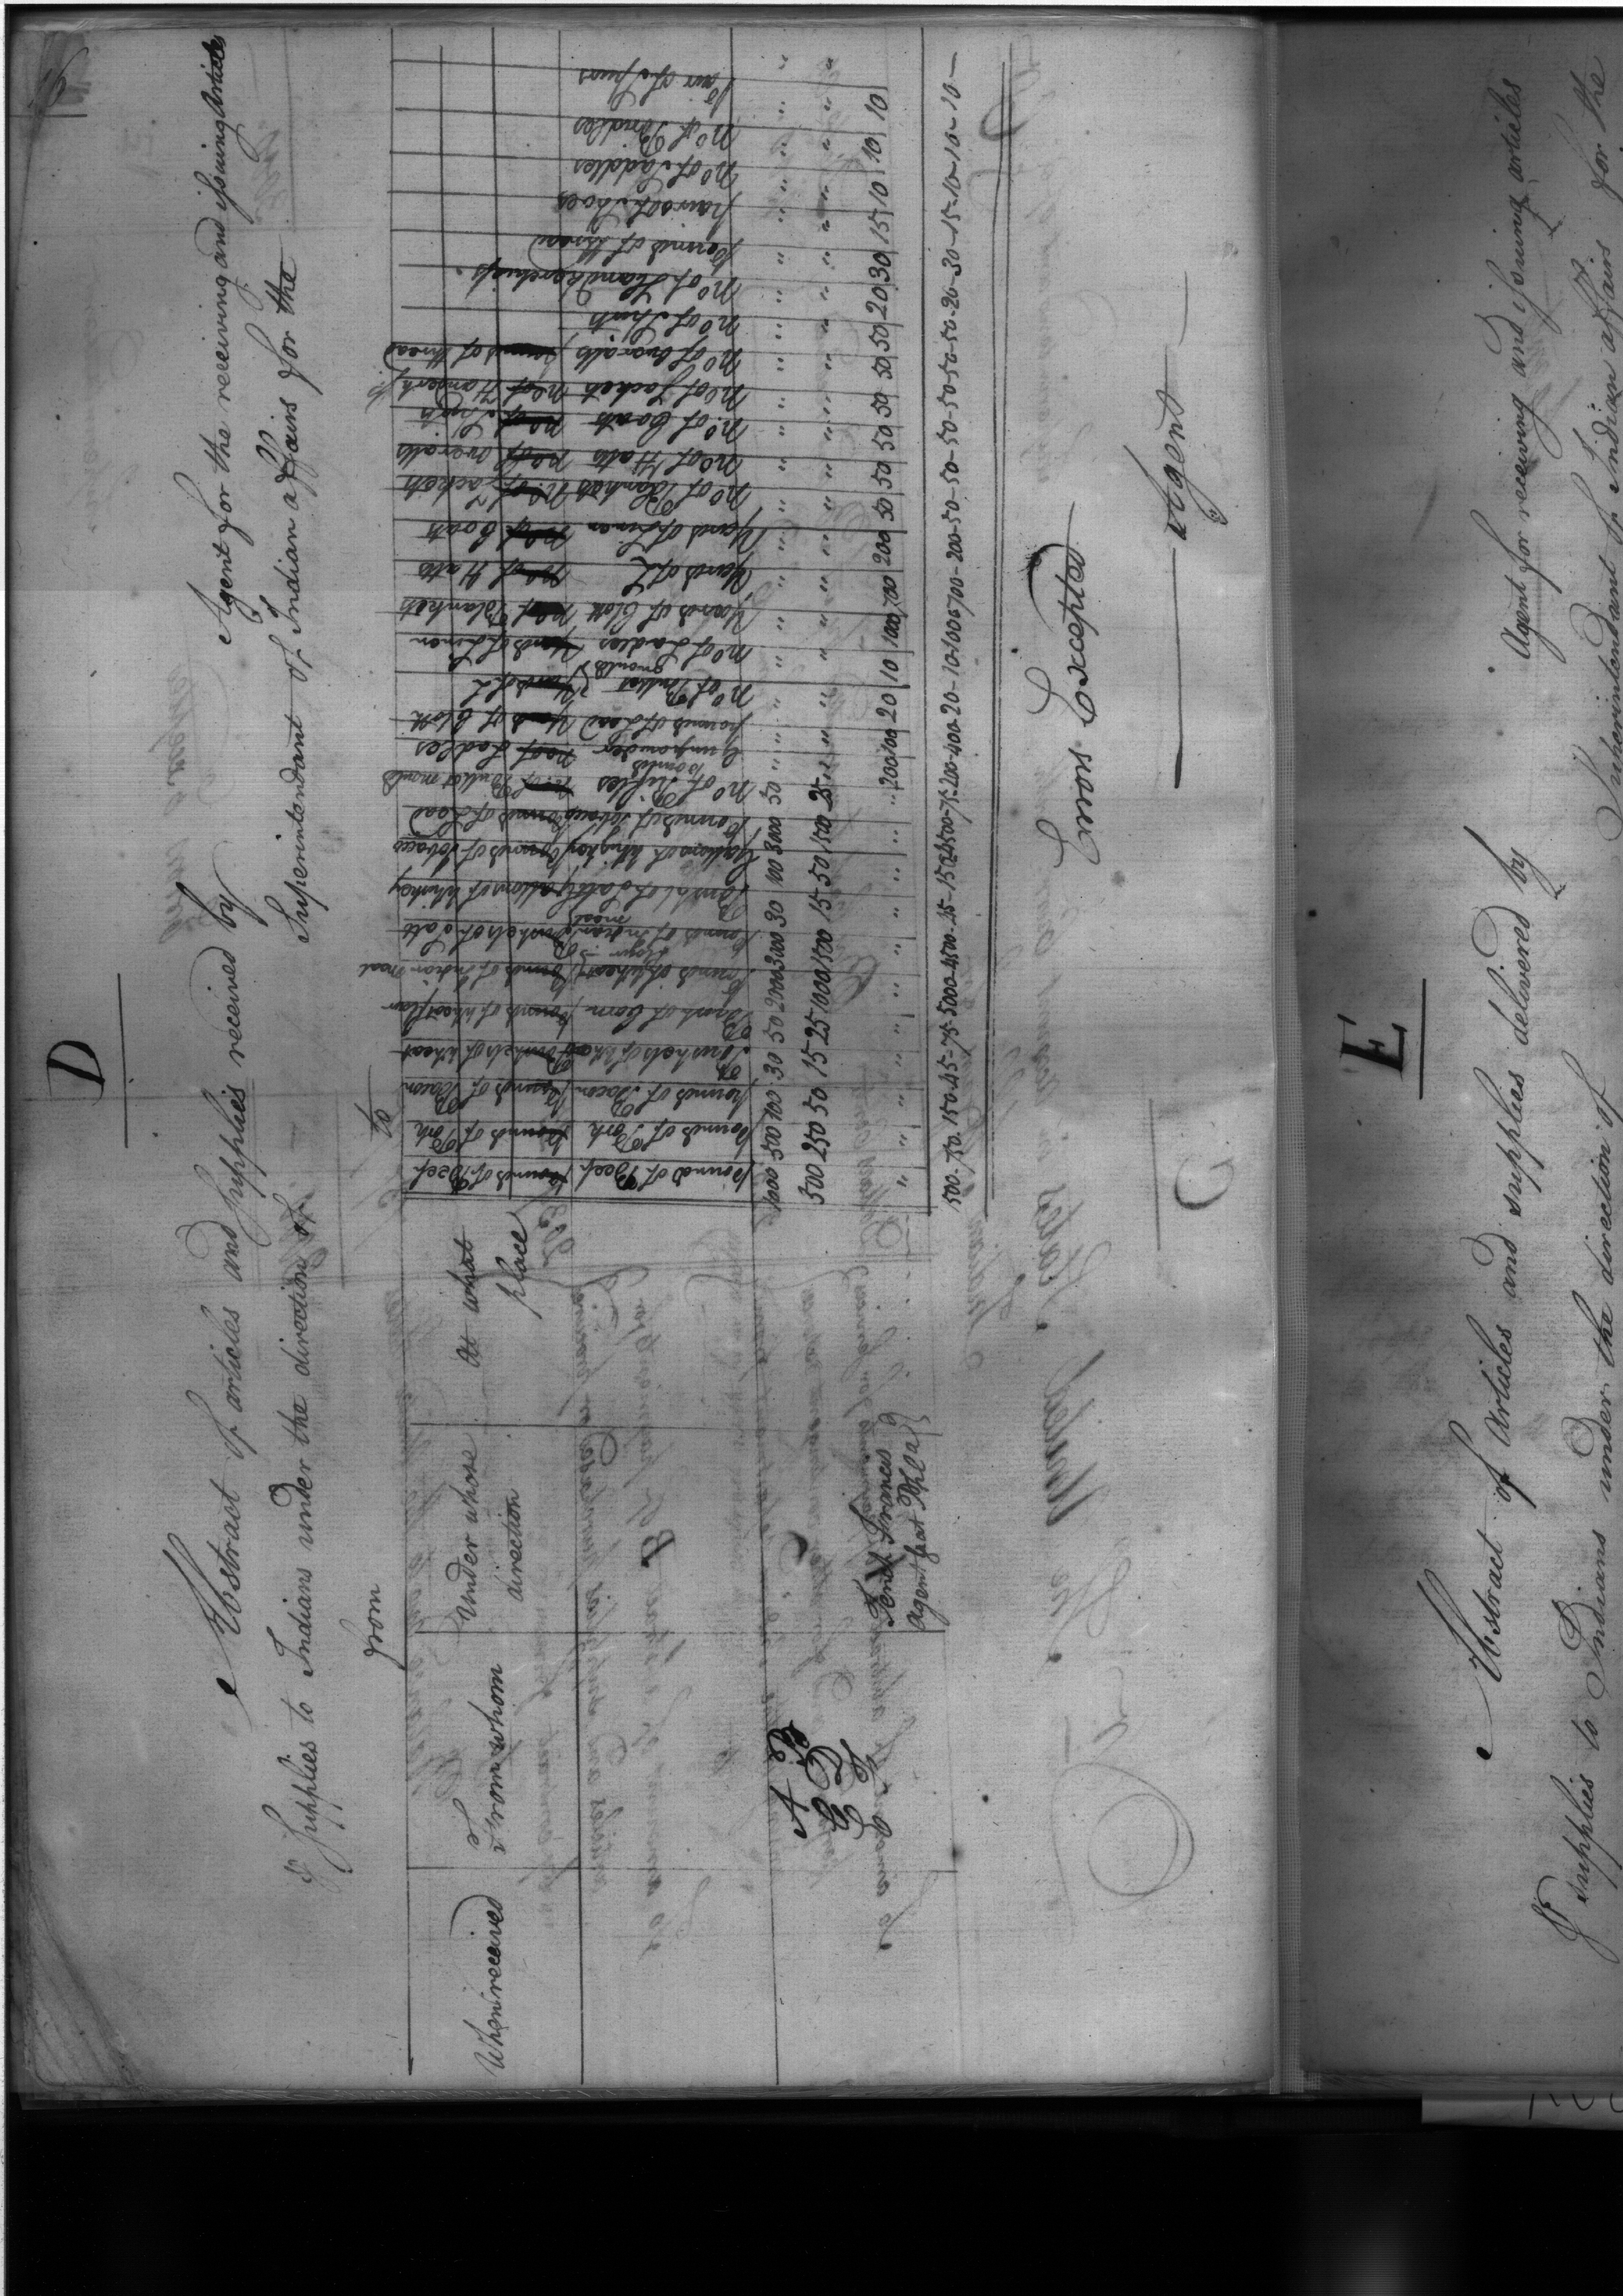 D
Abstract of articles and supplies received by Agent for the receiving and issuing Articles
& supplies to Indians under the direction of Superintendant of Indian affairs for the
from to
When received
From whom
Under whose direction
At what place
pounds of Beef
pounds of Pork
pounds of Bacon
Bushels of Wheat
Bush of Corn
Pounds of Wheat flour
Pounds of Indian meal
Bushels of Salt
Gallons of Whiskey
Pounds of Tobacco
No of Rifles
Pounds Gunpowder
pounds of Lead
No of Bullet moulds
No of Ladles
Yards of Cloth
Yards of L
Yards of Linen
No of Blankets
No of Hatts
No of Coats
No of Jackets
No of Overalls
No of Shirts
No of Handkerchiefs
Pounds of thread
pairs of Shoes
No of Saddles
No of Bridles
Pair of Spurs
A B 1000 500 100 30 50 2000 3000 30 100 3000 50 " " " " " " " " " " " " " " " " " "
C D 500 250 50 15 25 1000 1500 15 50 1500 25 " " " " " " " " " " " " " " " " " "
E F Tench Francis Agent at Phila " " " " " " " " " " " 200 400 20 10 1000 700 200 50 50 50 50 50 50 20 30 15 10 10 10
1500 - 750 - 150 - 45 - 75 - 3000 - 4500 - 45 - 150 - 4500 - 75 - 200 - 400 - 20 - 10 - 1000 - 700 - 200 - 50 - 50 - 50 - 50 - 50 - 50 - 20 - 30 - 15 - 10 - 10 - 10 —
Errors Excepted
Agent
E
Abstract of Articles and supplies delivered by Agent for receiving and issuing articles
& supplies to Indians under the direction of Superintendant of Indian affairs for the